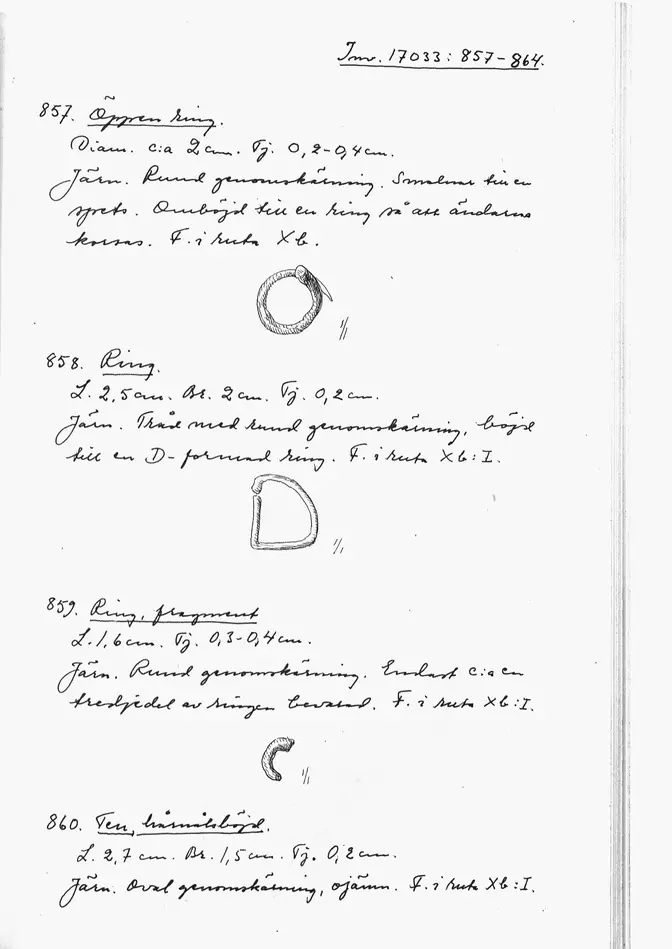 Inv. 17033: 857-864.
857. Öppen ring.
Diam. c:a 2 cm. Tj. 0,2-0,4 cm.
Järn. Rund genomskärning. Smalnar till en
spets. Omböjd till en ring så att ändarna
korsas. F. i ruta Xb.
1/1
858. Ring.
L. 2,5 cm. Br. 2 cm. Tj. 0,2 cm.
Järn. Tråd med rund genomskärning, böjd
till en D-formad ring. F. i ruta Xb:I.
1/1
859. Ring, fragment
L. 1,6 cm. Tj. 0,3-0,4 cm.
Järn. Rund genomskärning. Endast c:a en
tredjedel av ringen bevarad. F. i ruta Xb:I.
1/1
860. Ten, hårnålsböjd.
L. 2,7 cm. Br. 1,5 cm. Tj. 0,2 cm.
Järn. Oval genomskärning, ojämn. F. i ruta Xb:I.